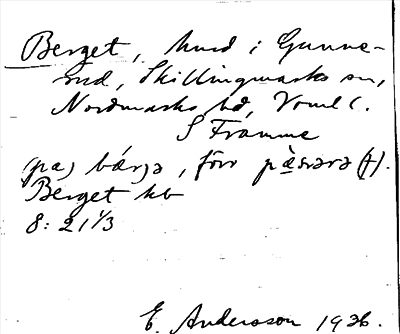 Berget, hmd i Gunne-
rud, Skillingmarks sn,
Nordmarks hd, Vrml l.
S Främme
(pa) bárja, förr pàsvara (f).
Berget kb
8: 21 1/3
E. Andersson 1936.